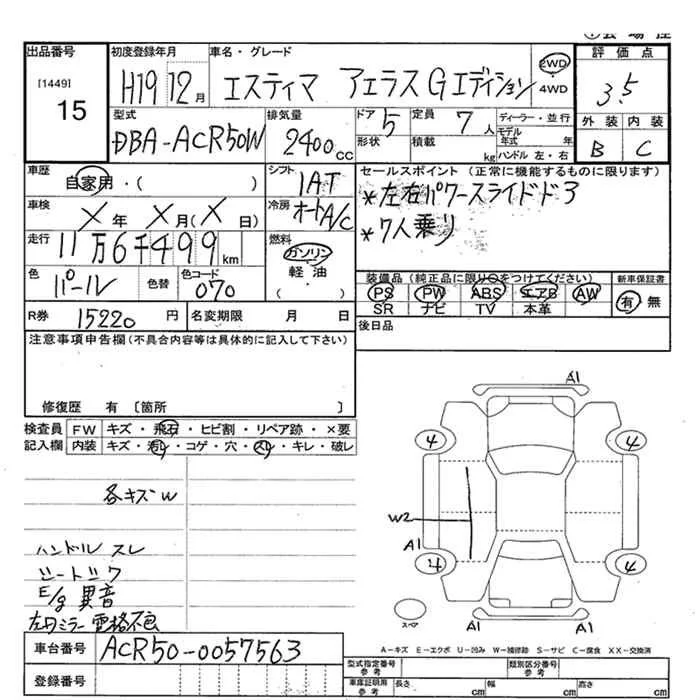 出品番号 初度登録年月 車名・グレード 評価点
[1449] H19 12月 エスティマ アエラス Gエディション 2WD 4WD 3.5
15
型式 排気量 ドア 5 定員 7人 ディーラー・並行 外装 内装
DBA-ACR50W 2400cc 形状 積載 kg モデル年式 年 B C
ハンドル 左・右
車歴 自家用・( ) シフト 1AT セールスポイント (正常に機能するものに限ります)
車検 X年 X月(X日) 冷房 オートA/C *左右パワースライドドア
走行 11万6千499km 燃料 *7人乗り
ガソリン
軽油
( )
色 パール 色替 色コード 070 装備品 (純正品に限り○をつけてください) 新車保証書
PS PW ABS エアB AW 有 無
SR ナビ TV 本革
R券 15220円 名変期限 月 日 後日品
注意事項申告欄 (不具合内容等は具体的に記入して下さい)
修復歴 有 〔箇所 〕
検査員 FW キズ・飛石・ヒビ割・リペア跡・×要
記入欄 内装 キズ・汚レ・コゲ・穴・スレ・キレ・破レ
各キズW
ハンドル スレ
E/g 異音
A1
4 4
W2
A1
4 4
スペア A1 A1
A-キズ E-エクボ U-凹み W-補修跡 S-サビ C-腐食 XX-交換済
車台番号 ACR50-0057563
登録番号
型式指定番号 参考 類別区分番号 参考
車庫証明用 参考 長さ cm 幅 cm 高さ cm